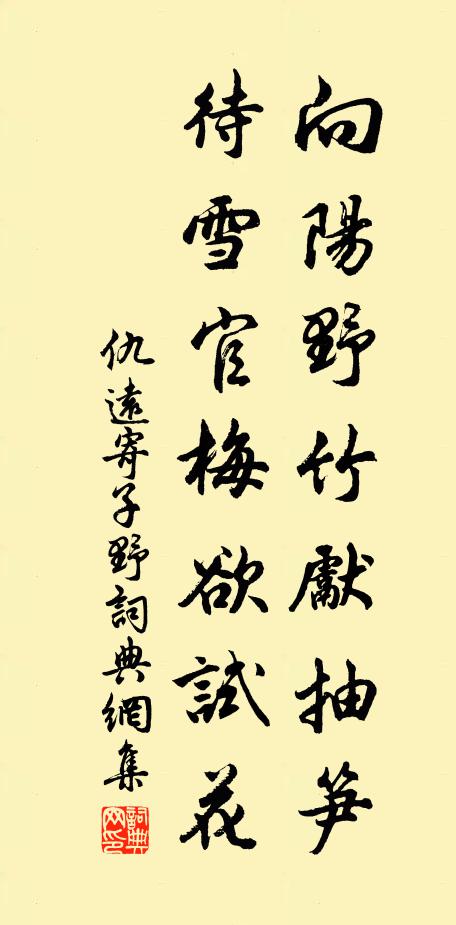 向陽野竹獻抽笋
待雪官梅欲試花
仇遠寄子野詞典網集
詞典
网印